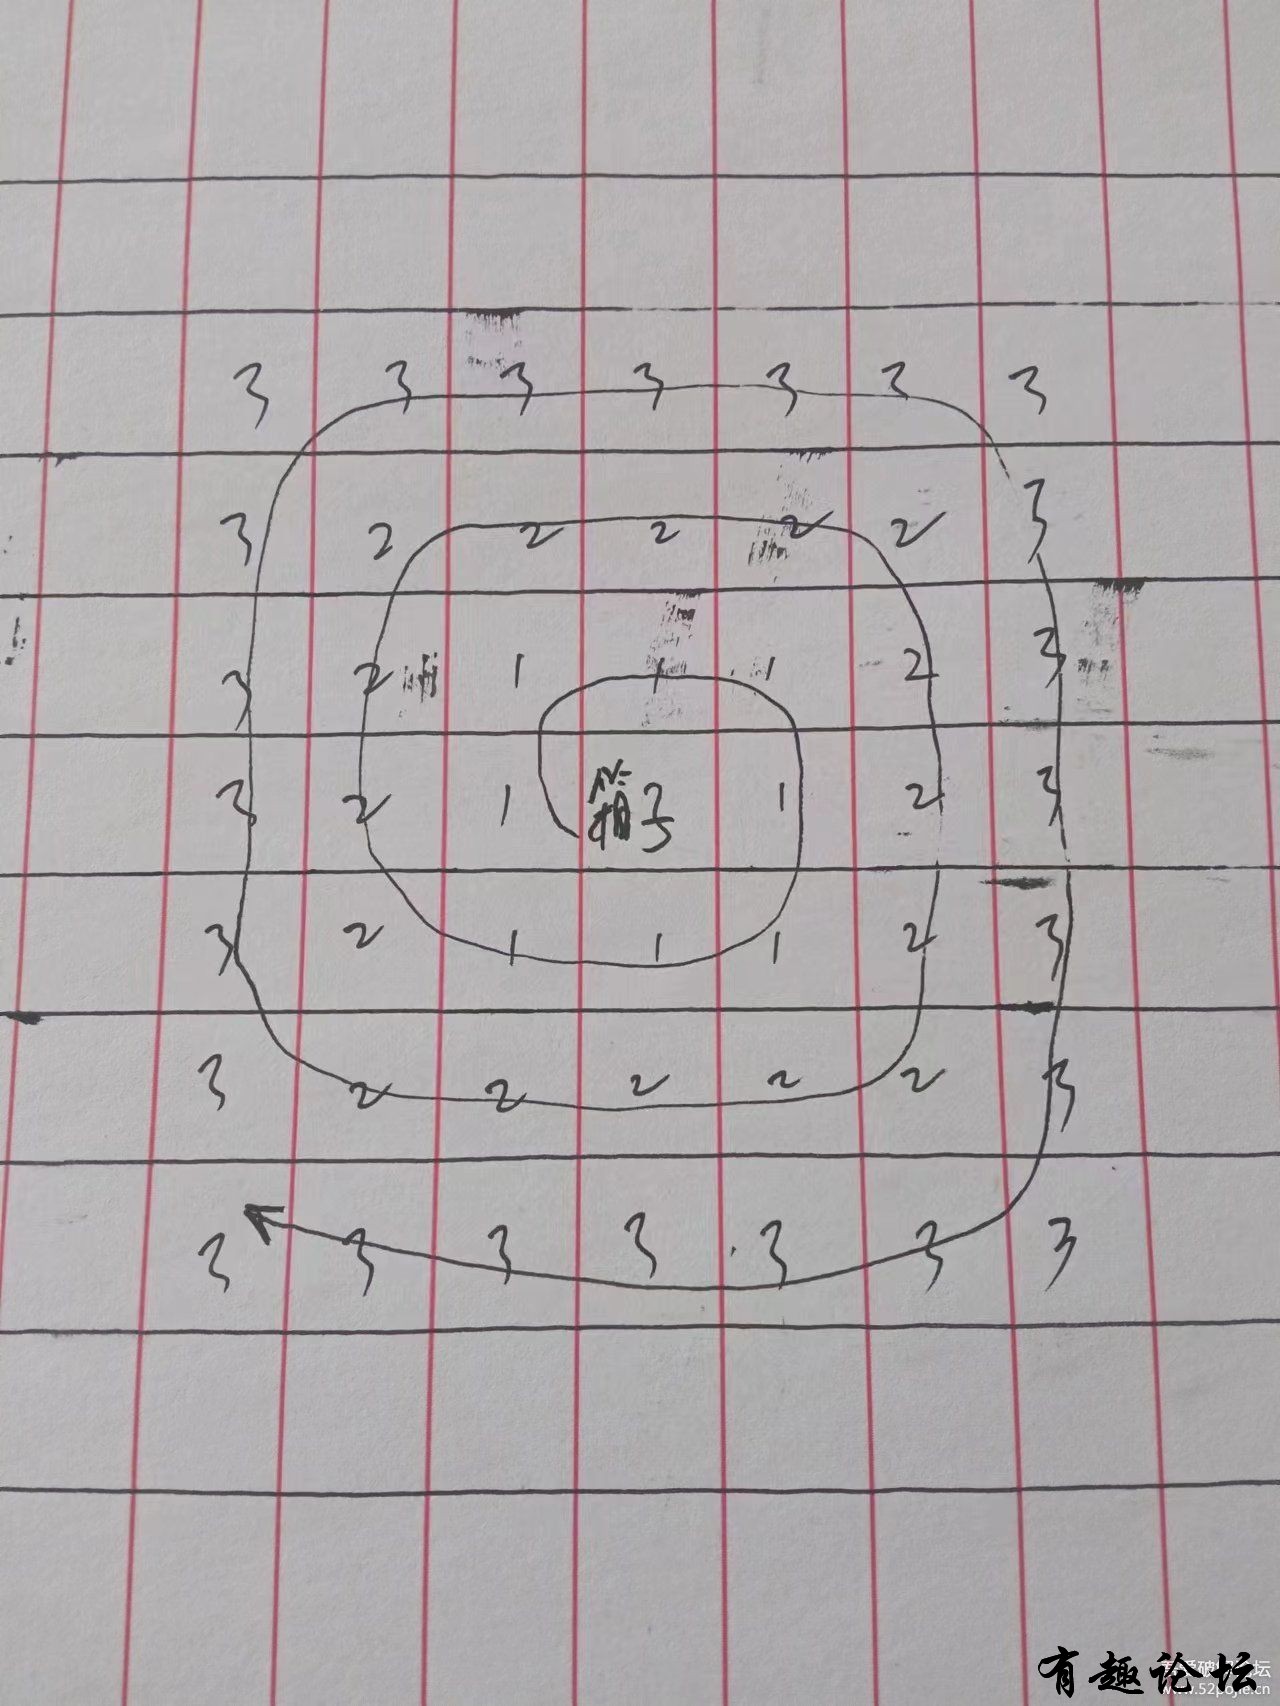 3 3 3 3 3 3 3
3 2 2 2 2 2 3
3 2 1 1 1 2 3
3 2 1 箱子 1 2 3
3 2 1 1 1 2 3
3 2 2 2 2 2 3
3 3 3 3 3 3 3
有趣论坛
www.52pojie.cn